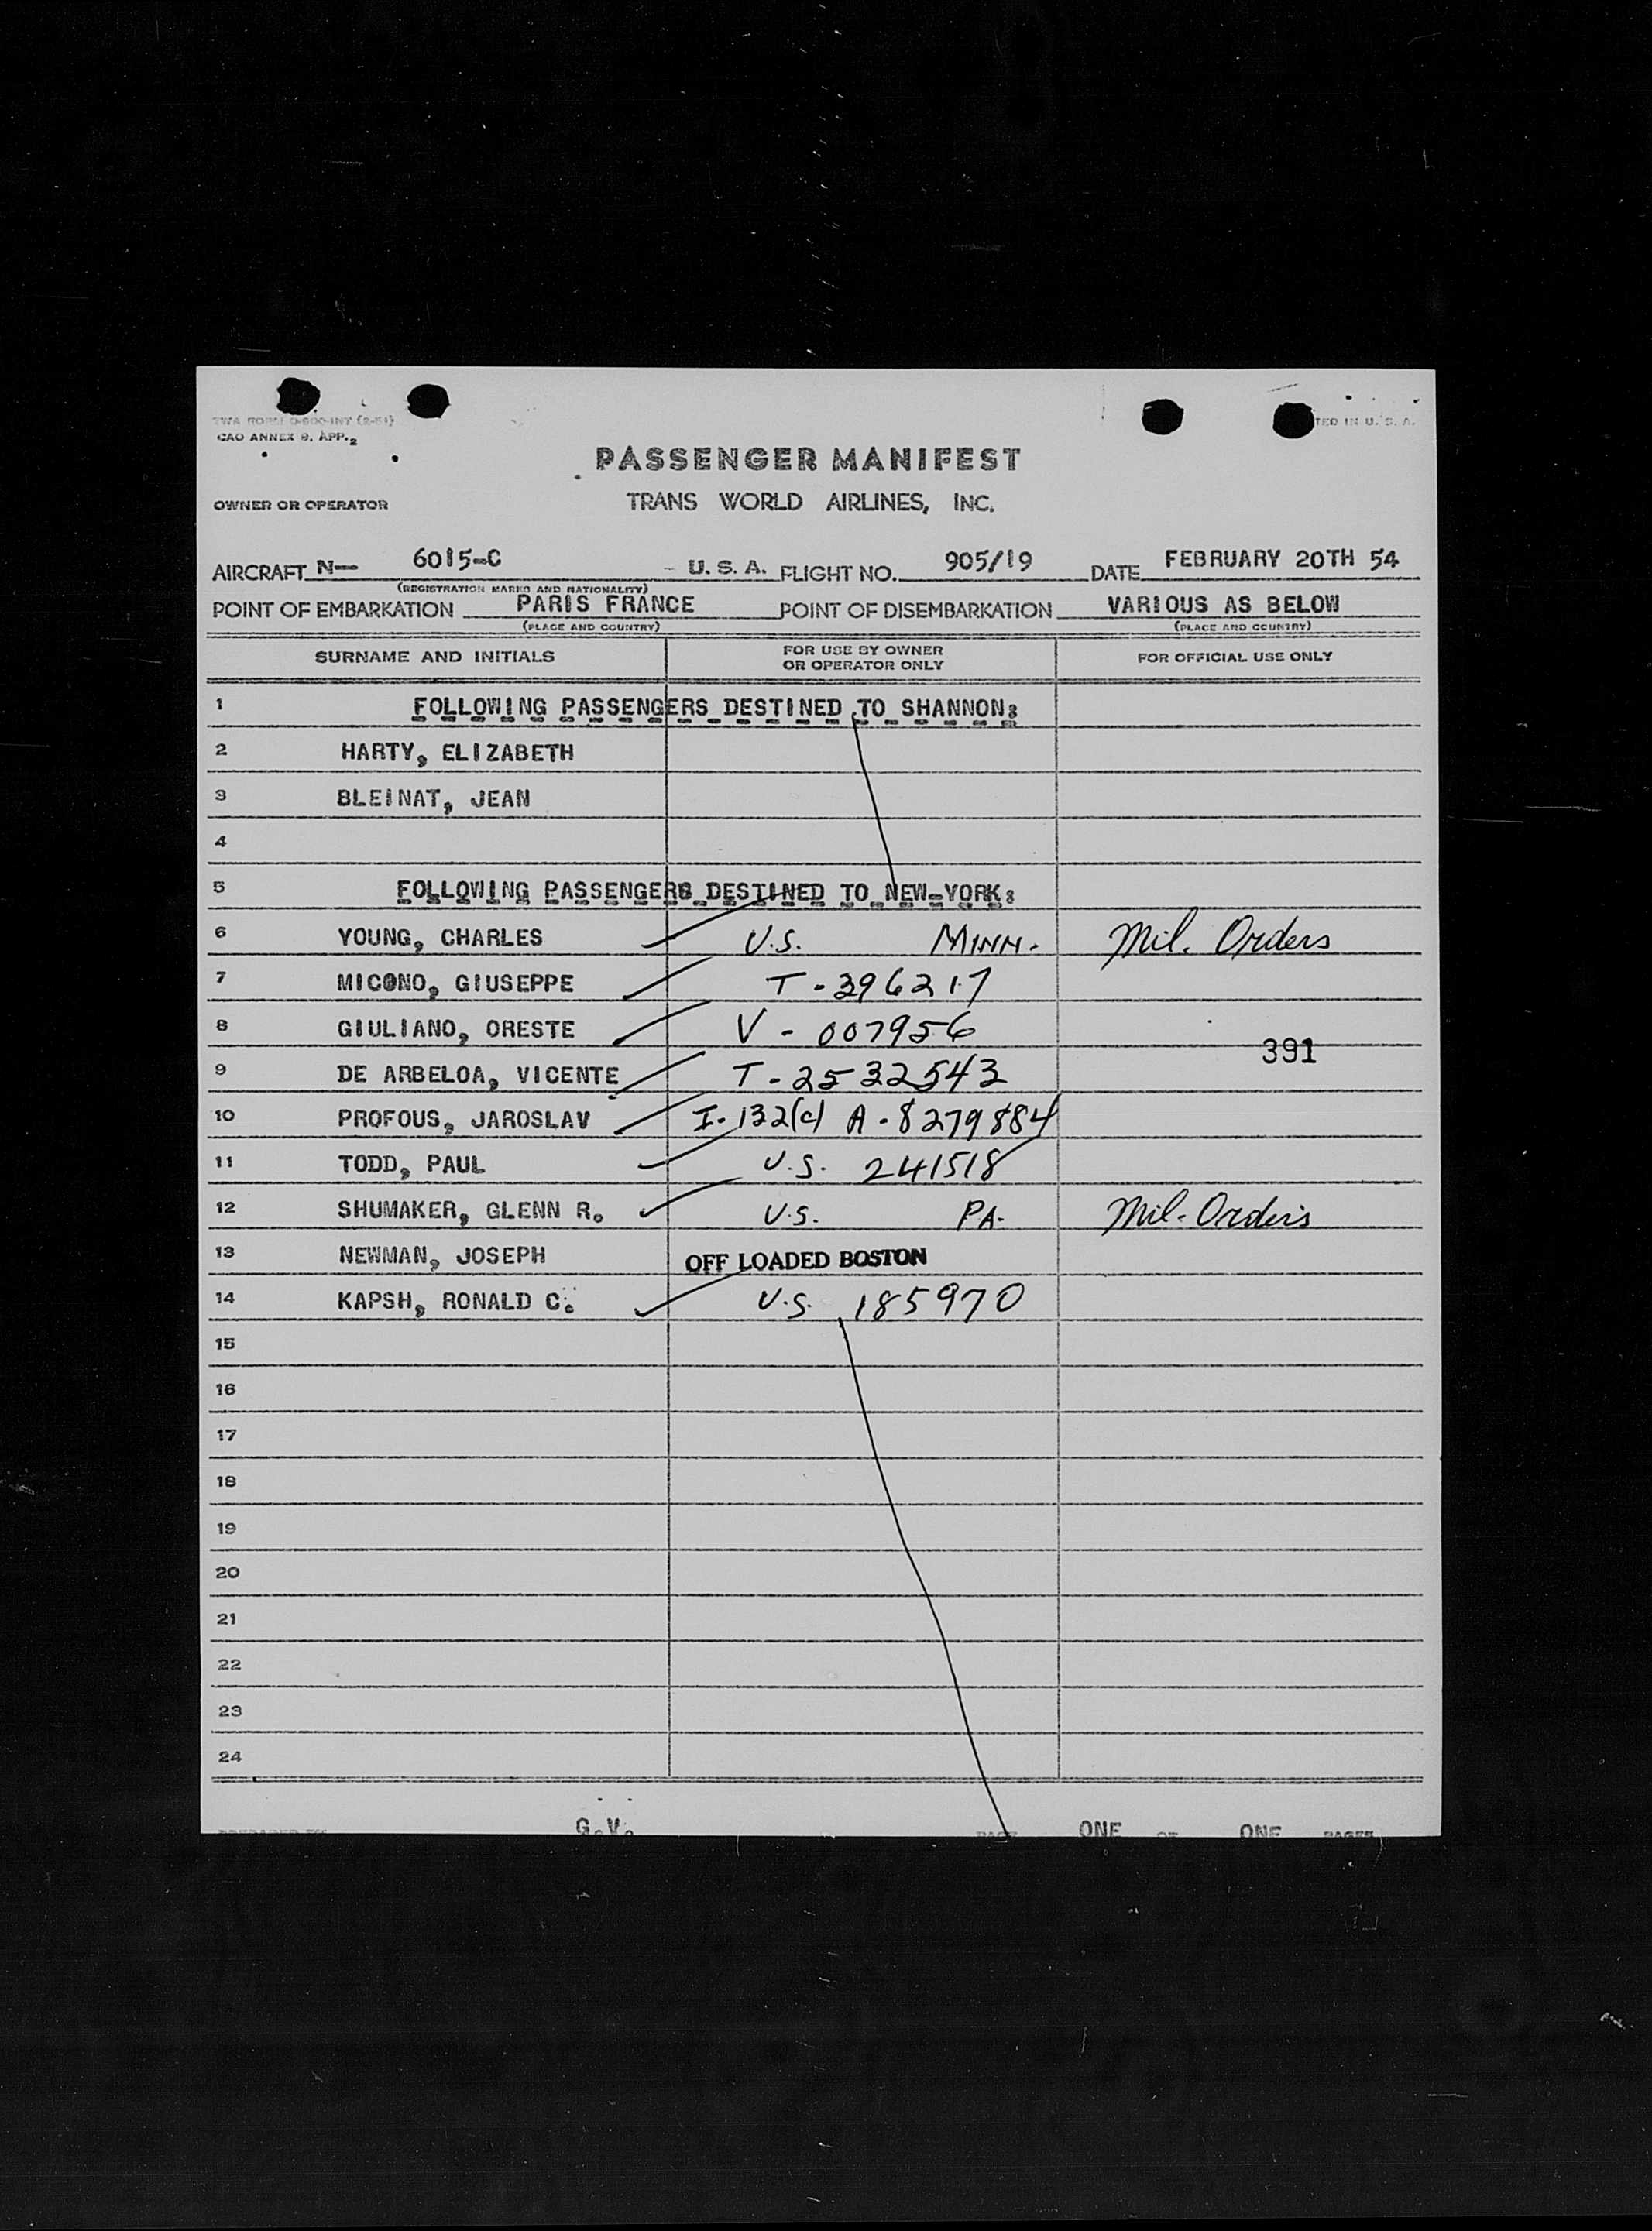 TWA FORM O-800-INT (2-51)
CAO ANNEX 9, APP. 2
TED IN U. S. A.
PASSENGER MANIFEST
OWNER OR OPERATOR TRANS WORLD AIRLINES, INC.
AIRCRAFT N— 6015-C - U. S. A. FLIGHT NO. 905/19 DATE FEBRUARY 20TH 54
(REGISTRATION MARKS AND NATIONALITY)
POINT OF EMBARKATION PARIS FRANCE POINT OF DISEMBARKATION VARIOUS AS BELOW
(PLACE AND COUNTRY) (PLACE AND COUNTRY)
SURNAME AND INITIALS FOR USE BY OWNER OR OPERATOR ONLY FOR OFFICIAL USE ONLY
1 FOLLOWING PASSENGERS DESTINED TO SHANNON:
2 HARTY, ELIZABETH
3 BLEINAT, JEAN
4
5 FOLLOWING PASSENGERS DESTINED TO NEW-YORK:
6 YOUNG, CHARLES U.S. MINN. Mil. Orders
7 MICONO, GIUSEPPE T-396217
8 GIULIANO, ORESTE V-007956
391
9 DE ARBELOA, VICENTE T-2532543
10 PROFOUS, JAROSLAV I-132(c) A-8279884
11 TODD, PAUL U.S. 241518
12 SHUMAKER, GLENN R. U.S. PA. Mil. Orders
13 NEWMAN, JOSEPH OFF LOADED BOSTON
14 KAPSH, RONALD C. U.S. 185970
15
16
17
18
19
20
21
22
23
24
G.V. PAGE ONE OF ONE PAGES